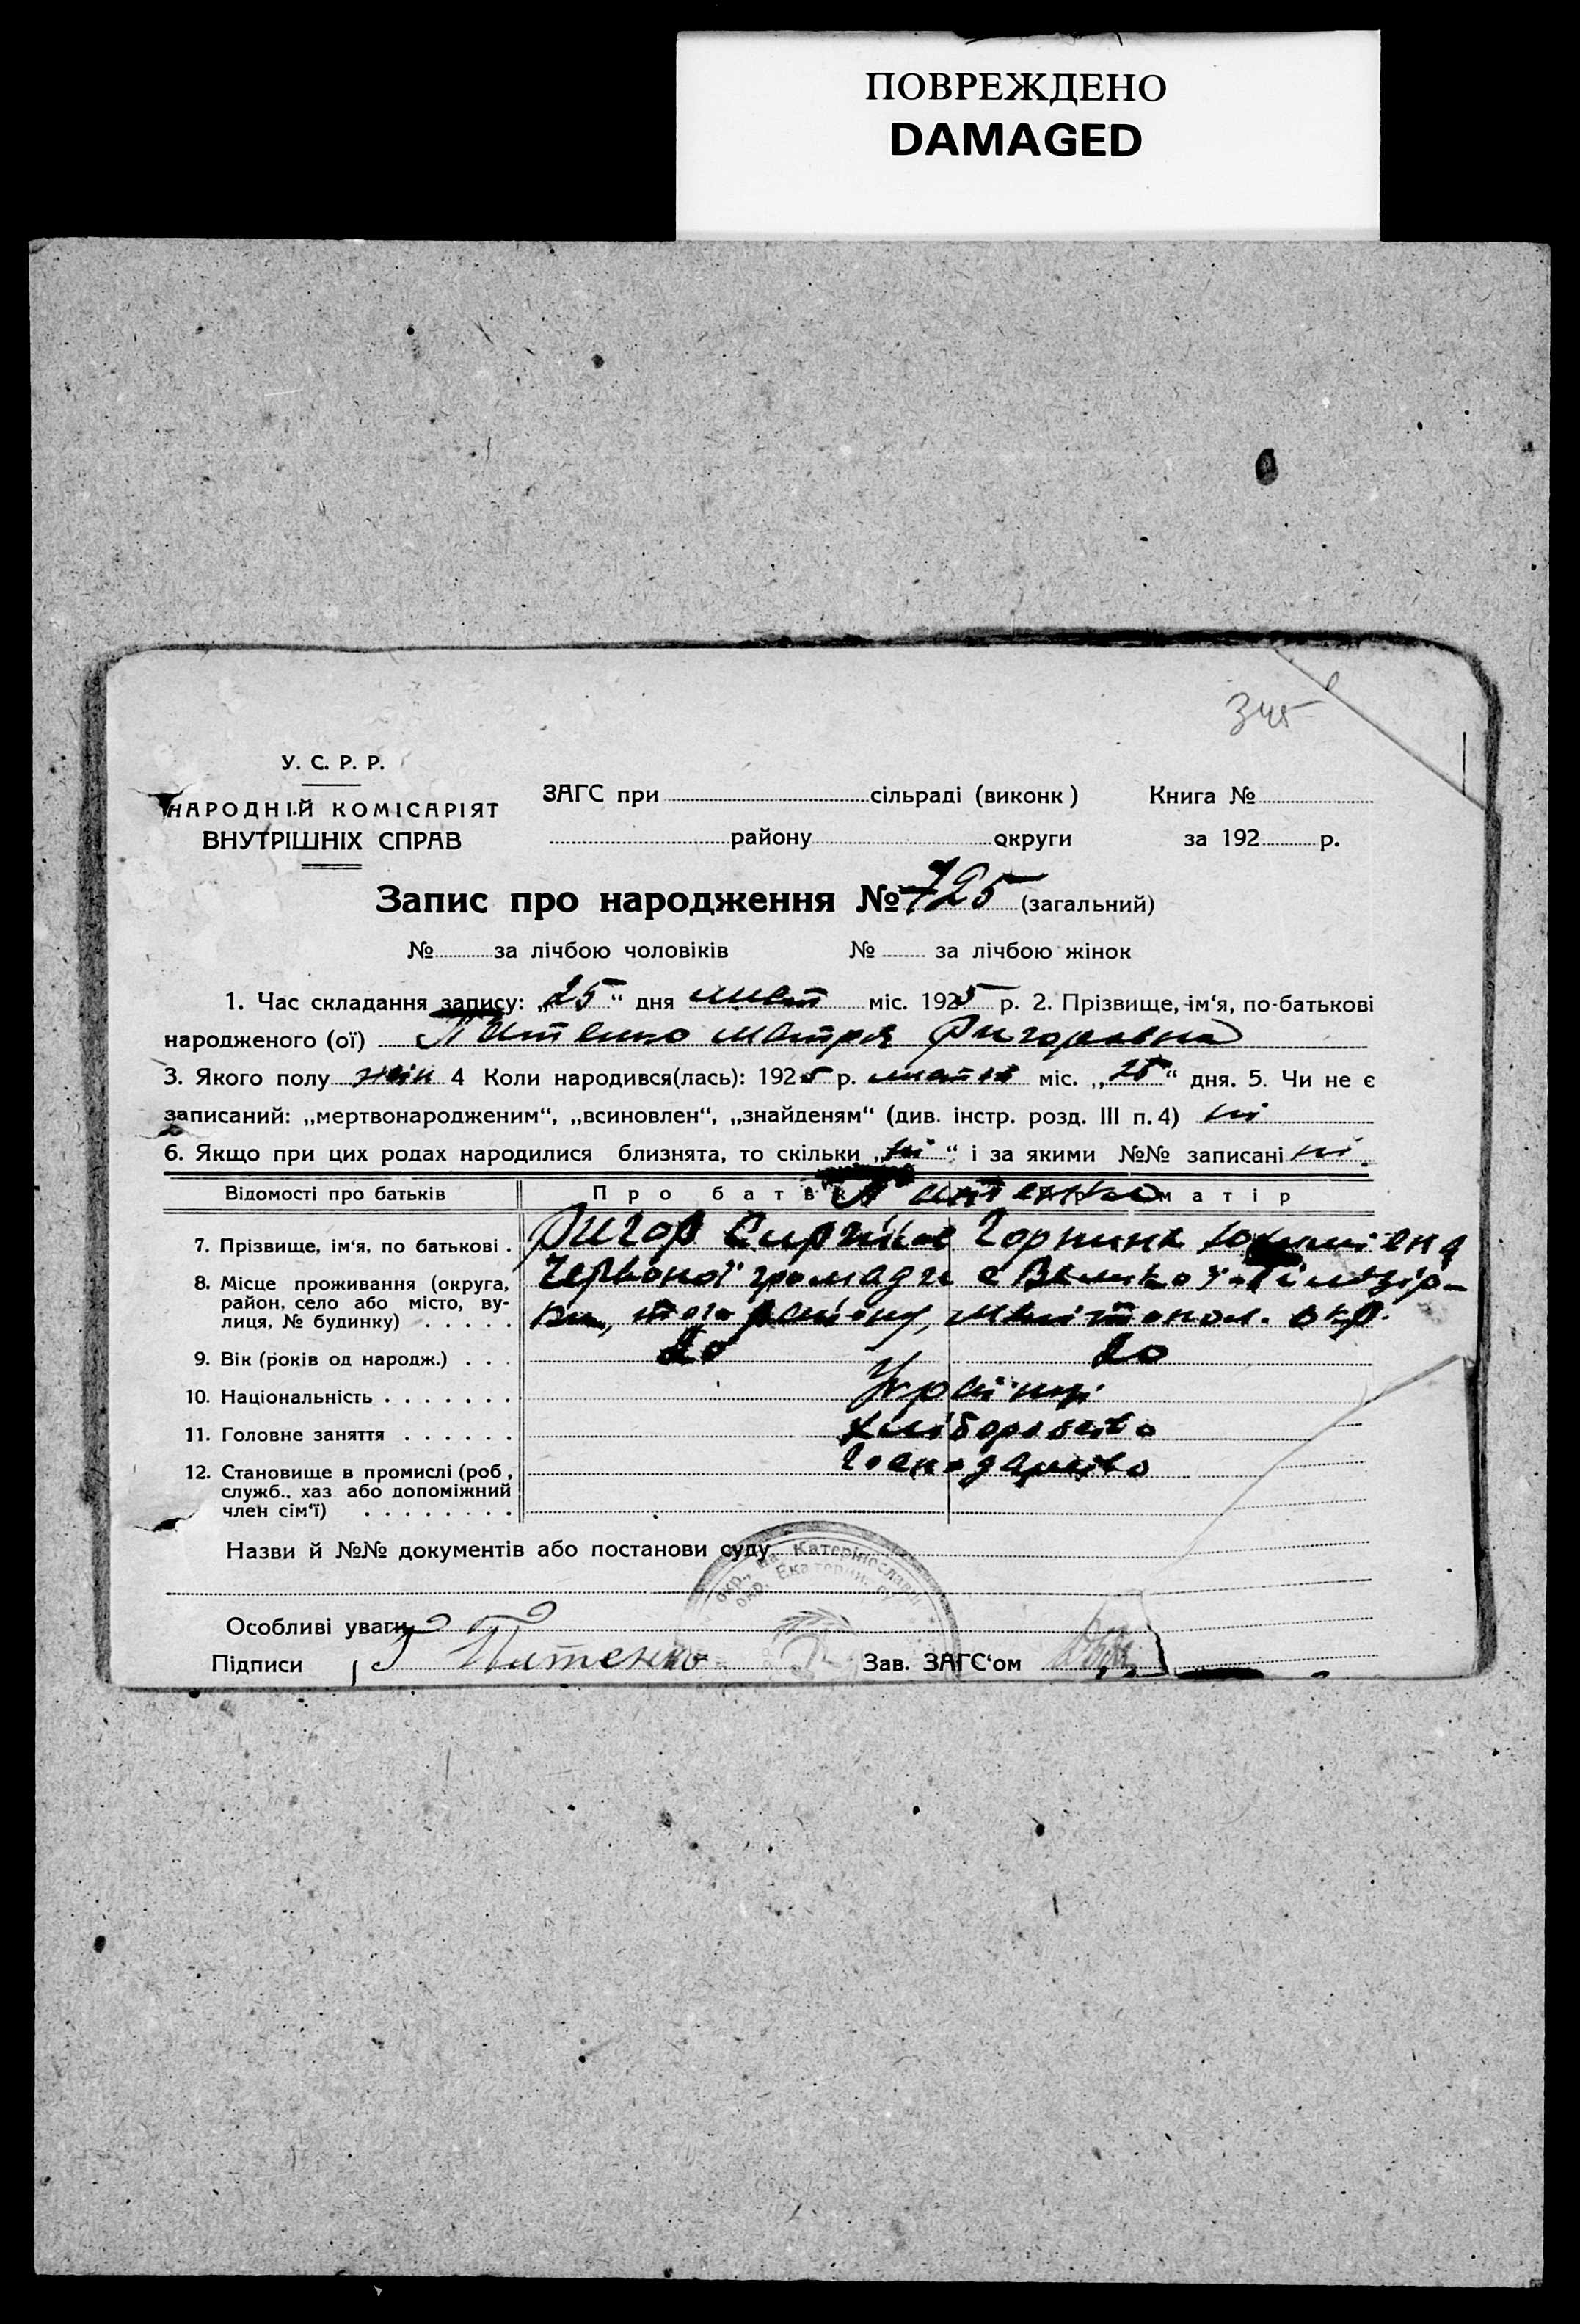 ПОВРЕЖДЕНО
DAMAGED
345
У. С. Р. Р.
НАРОДНІЙ КОМІСАРІЯТ
ВНУТРІШНІХ СПРАВ
ЗАГС при сільраді (виконк) Книга №
району округи за 192 р.
Запис про народження № 725 (загальний)
№ за лічбою чоловіків № за лічбою жінок
1. Час складання запису: „25“ дня лист міс. 1925 р. 2. Прізвище, ім‘я, по-батькові
народженого (ої) Питенко Мотря Григоровна
3. Якого полу жін 4 Коли народився(лась): 1925 р. міс. „25“ дня. 5. Чи не є
записаний: „мертвонародженим“, „всиновлен“, „знайденям“ (див. інстр. розд. III п. 4) ні
6. Якщо при цих родах народилися близнята, то скільки „ні“ і за якими №№ записані ні
Відомості про батьків Про батька Питенко матір
7. Прізвище, ім‘я, по батькові . Григор Горпина
8. Місце проживання (округа,
район, село або місто, ву-
лиця, № будинку) . . . . .
Червоної громади с Велико
того району, мелітопол. окр.
9. Вік (років од народж.) . . . 20 20
10. Національність . . . . . . . Українці
11. Головне заняття . . . . . . хліборобство
12. Становище в промислі (роб,
служб.. хаз або допоміжний
член сім‘ї) . . . . . . . .
Господарство
Назви й №№ документів або постанови суду
окр., на Катерінославщ
окр. Екатерин.
Особливі уваги
Підписи Питенко Зав. ЗАГС‘ом